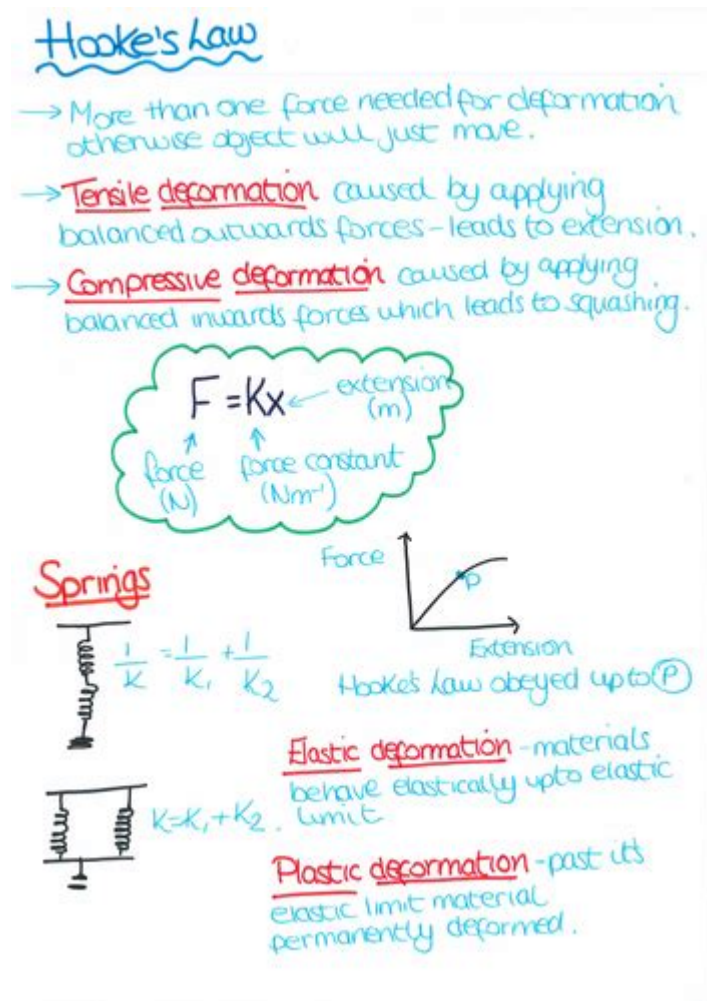 Hooke's Law
→ More than one force needed for deformation
otherwise object will just move.
→ Tensile deformation caused by applying
balanced outwards forces - leads to extension.
→ Compressive deformation caused by applying
balanced inwards forces which leads to squashing.
F = Kx ← extension (m)
↑ force (N)
↑ force constant (Nm⁻¹)
Force
P
Extension
Hooke's Law obeyed up to Ⓟ
Springs
1/K = 1/K₁ + 1/K₂
K = K₁ + K₂.
Elastic deformation - materials
behave elastically upto elastic
limit
Plastic deformation - past it's
elastic limit material
permanently deformed.